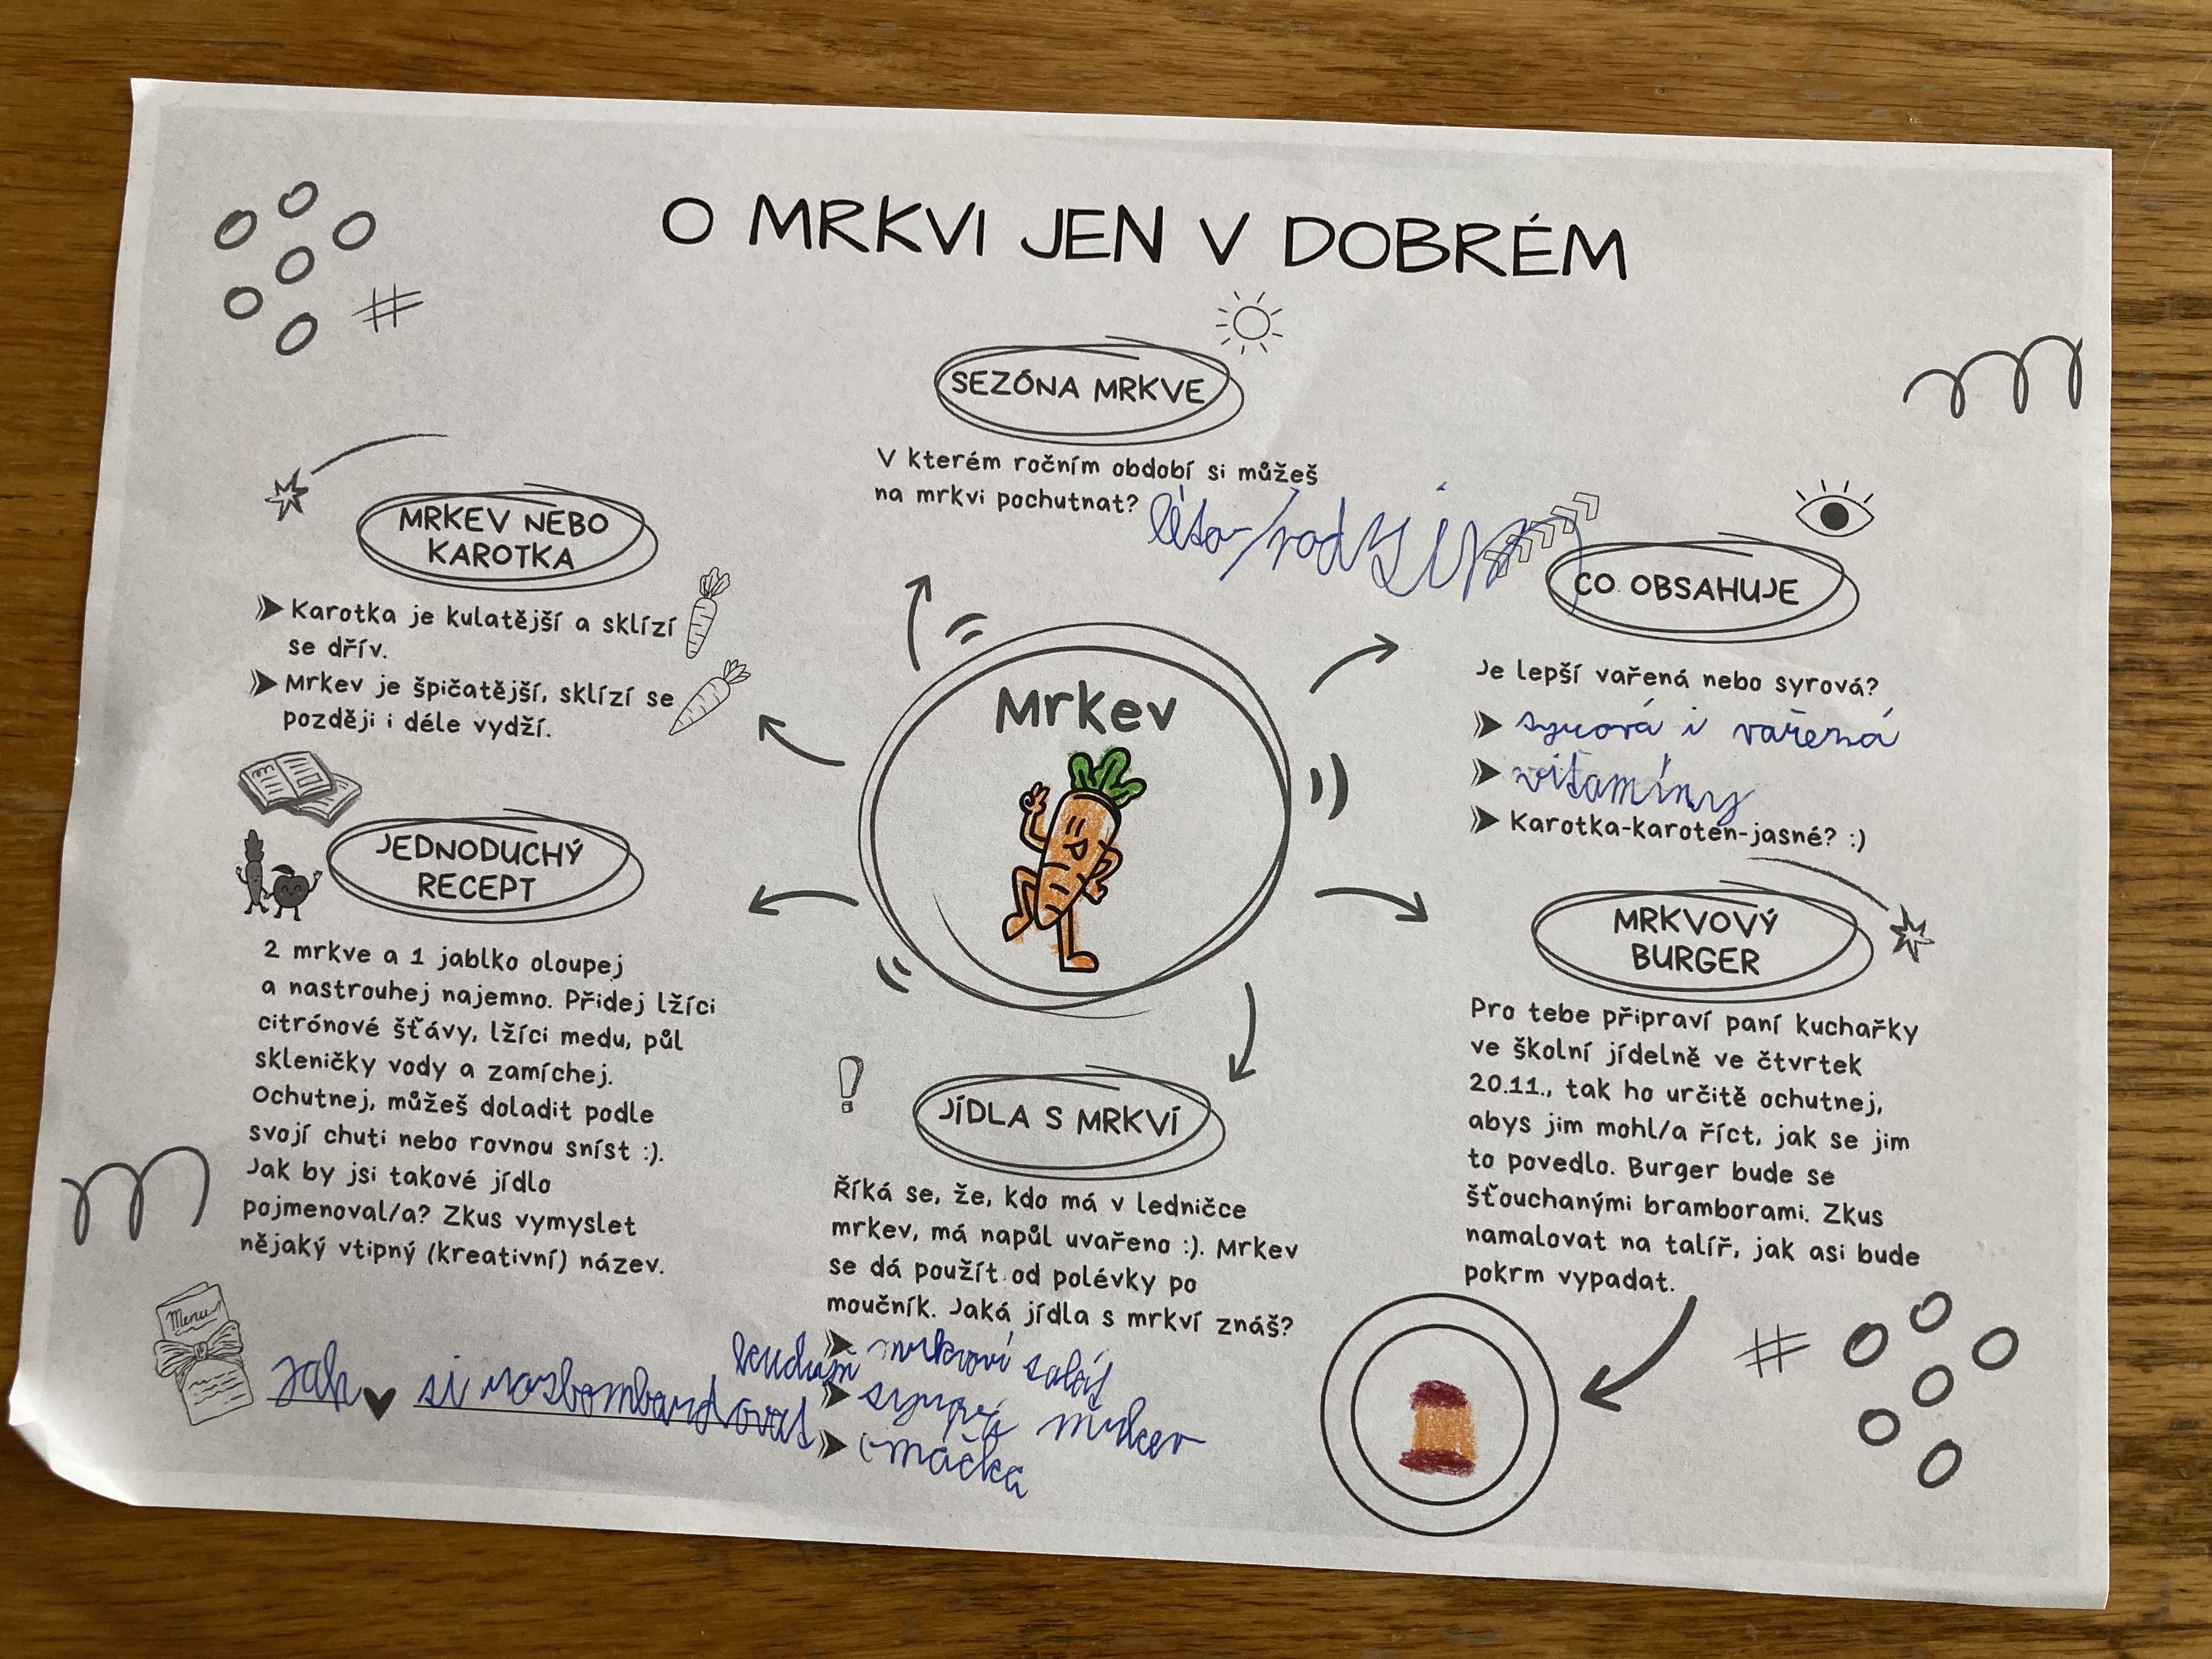 O MRKVI JEN V DOBRÉM
SEZÓNA MRKVE
V kterém ročním období si můžeš
na mrkvi pochutnat? léto/
MREKV NEBO
KAROTKA
Karotka je kulatější a sklízí
se dřív.
Mrkev je špičatější, sklízí se
později i déle vydží.
CO OBSAHUJE
Je lepší vařená nebo syrová?
syrová i vařená
vitamíny
Karotka-karoten-jasné? :)
Mrkev
JEDNODUCHÝ
RECEPT
2 mrkve a 1 jablko oloupej
a nastrouhej najemno. Přidej lžíci
citrónové šťávy, lžíci medu, půl
skleničky vody a zamíchej.
Ochutnej, můžeš doladit podle
svojí chuti nebo rovnou sníst :).
Jak by jsi takové jídlo
pojmenoval/a? Zkus vymyslet
nějaký vtipný (kreativní) název.
Menu
Jak si
JÍDLA S MRKVÍ
Říká se, že, kdo má v ledničce
mrkev, má napůl uvařeno :). Mrkev
se dá použít od polévky po
moučník. Jaká jídla s mrkví znáš?
mrkvoví salát
mrkev
omáčka
MRKVOVÝ
BURGER
Pro tebe připraví paní kuchařky
ve školní jídelně ve čtvrtek
20.11., tak ho určitě ochutnej,
abys jim mohl/a říct, jak se jim
to povedlo. Burger bude se
šťouchanými bramborami. Zkus
namalovat na talíř, jak asi bude
pokrm vypadat.